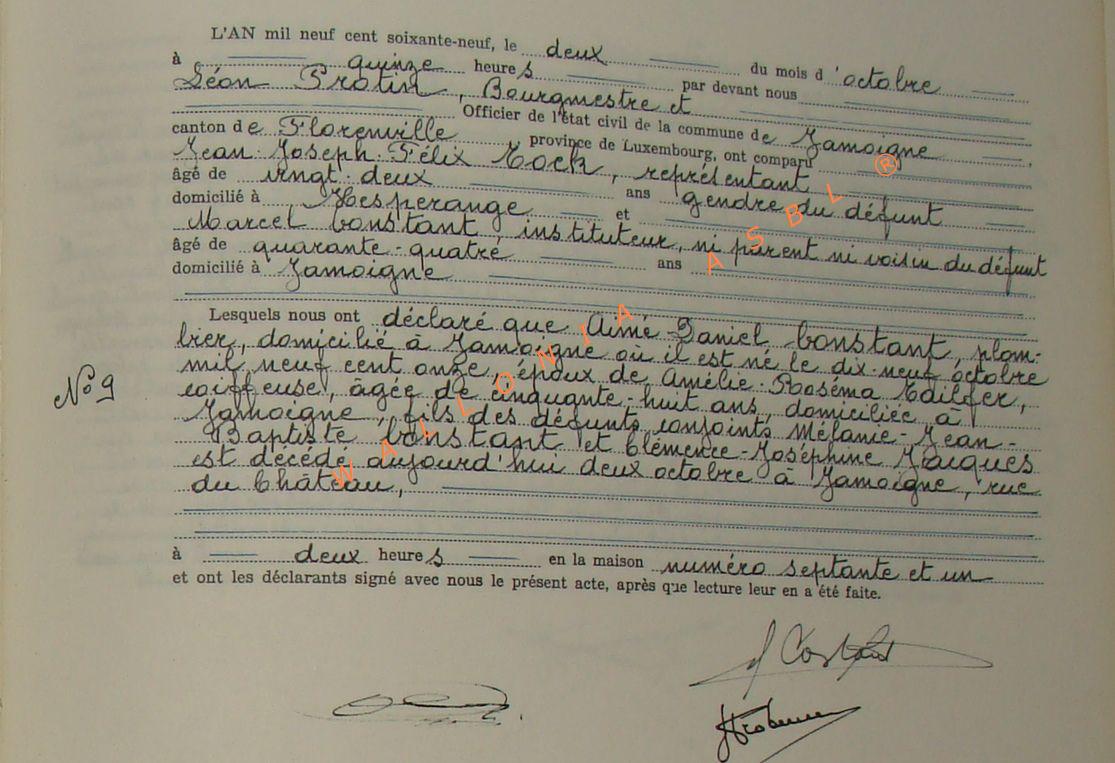 L'AN mil neuf cent soixante-neuf, le deux du mois d'octobre
à quinze heures par devant nous
Léon Protin, Bourgmestre et
Officier de l'état civil de la commune de Jamoigne
canton de Florenville province de Luxembourg, ont comparu
Jean-Joseph-Félix Kock, représentant
âgé de vingt-deux ans gendre du défunt
domicilié à Hesperange et
Marcel Constant, instituteur, ni parent ni voisin du défunt
âgé de quarante-quatre ans
domicilié à Jamoigne
Lesquels nous ont déclaré que Aimé-Daniel Constant, plom-
bier, domicilié à Jamoigne où il est né le dix-neuf octobre
mil neuf cent onze, époux de Amélie-Roséma
N° 9
coiffeuse, âgée de cinquante-huit ans, domiciliée à
Jamoigne, fils des défunts conjoints Mélanie-Jean-
Baptiste Constant et Clémence-Joséphine Jacques
est décédé aujourd'hui deux octobre à Jamoigne, rue
du Château,
à deux heures en la maison numéro septante et un
et ont les déclarants signé avec nous le présent acte, après que lecture leur en a été faite.
WALLONIA ASBL ®